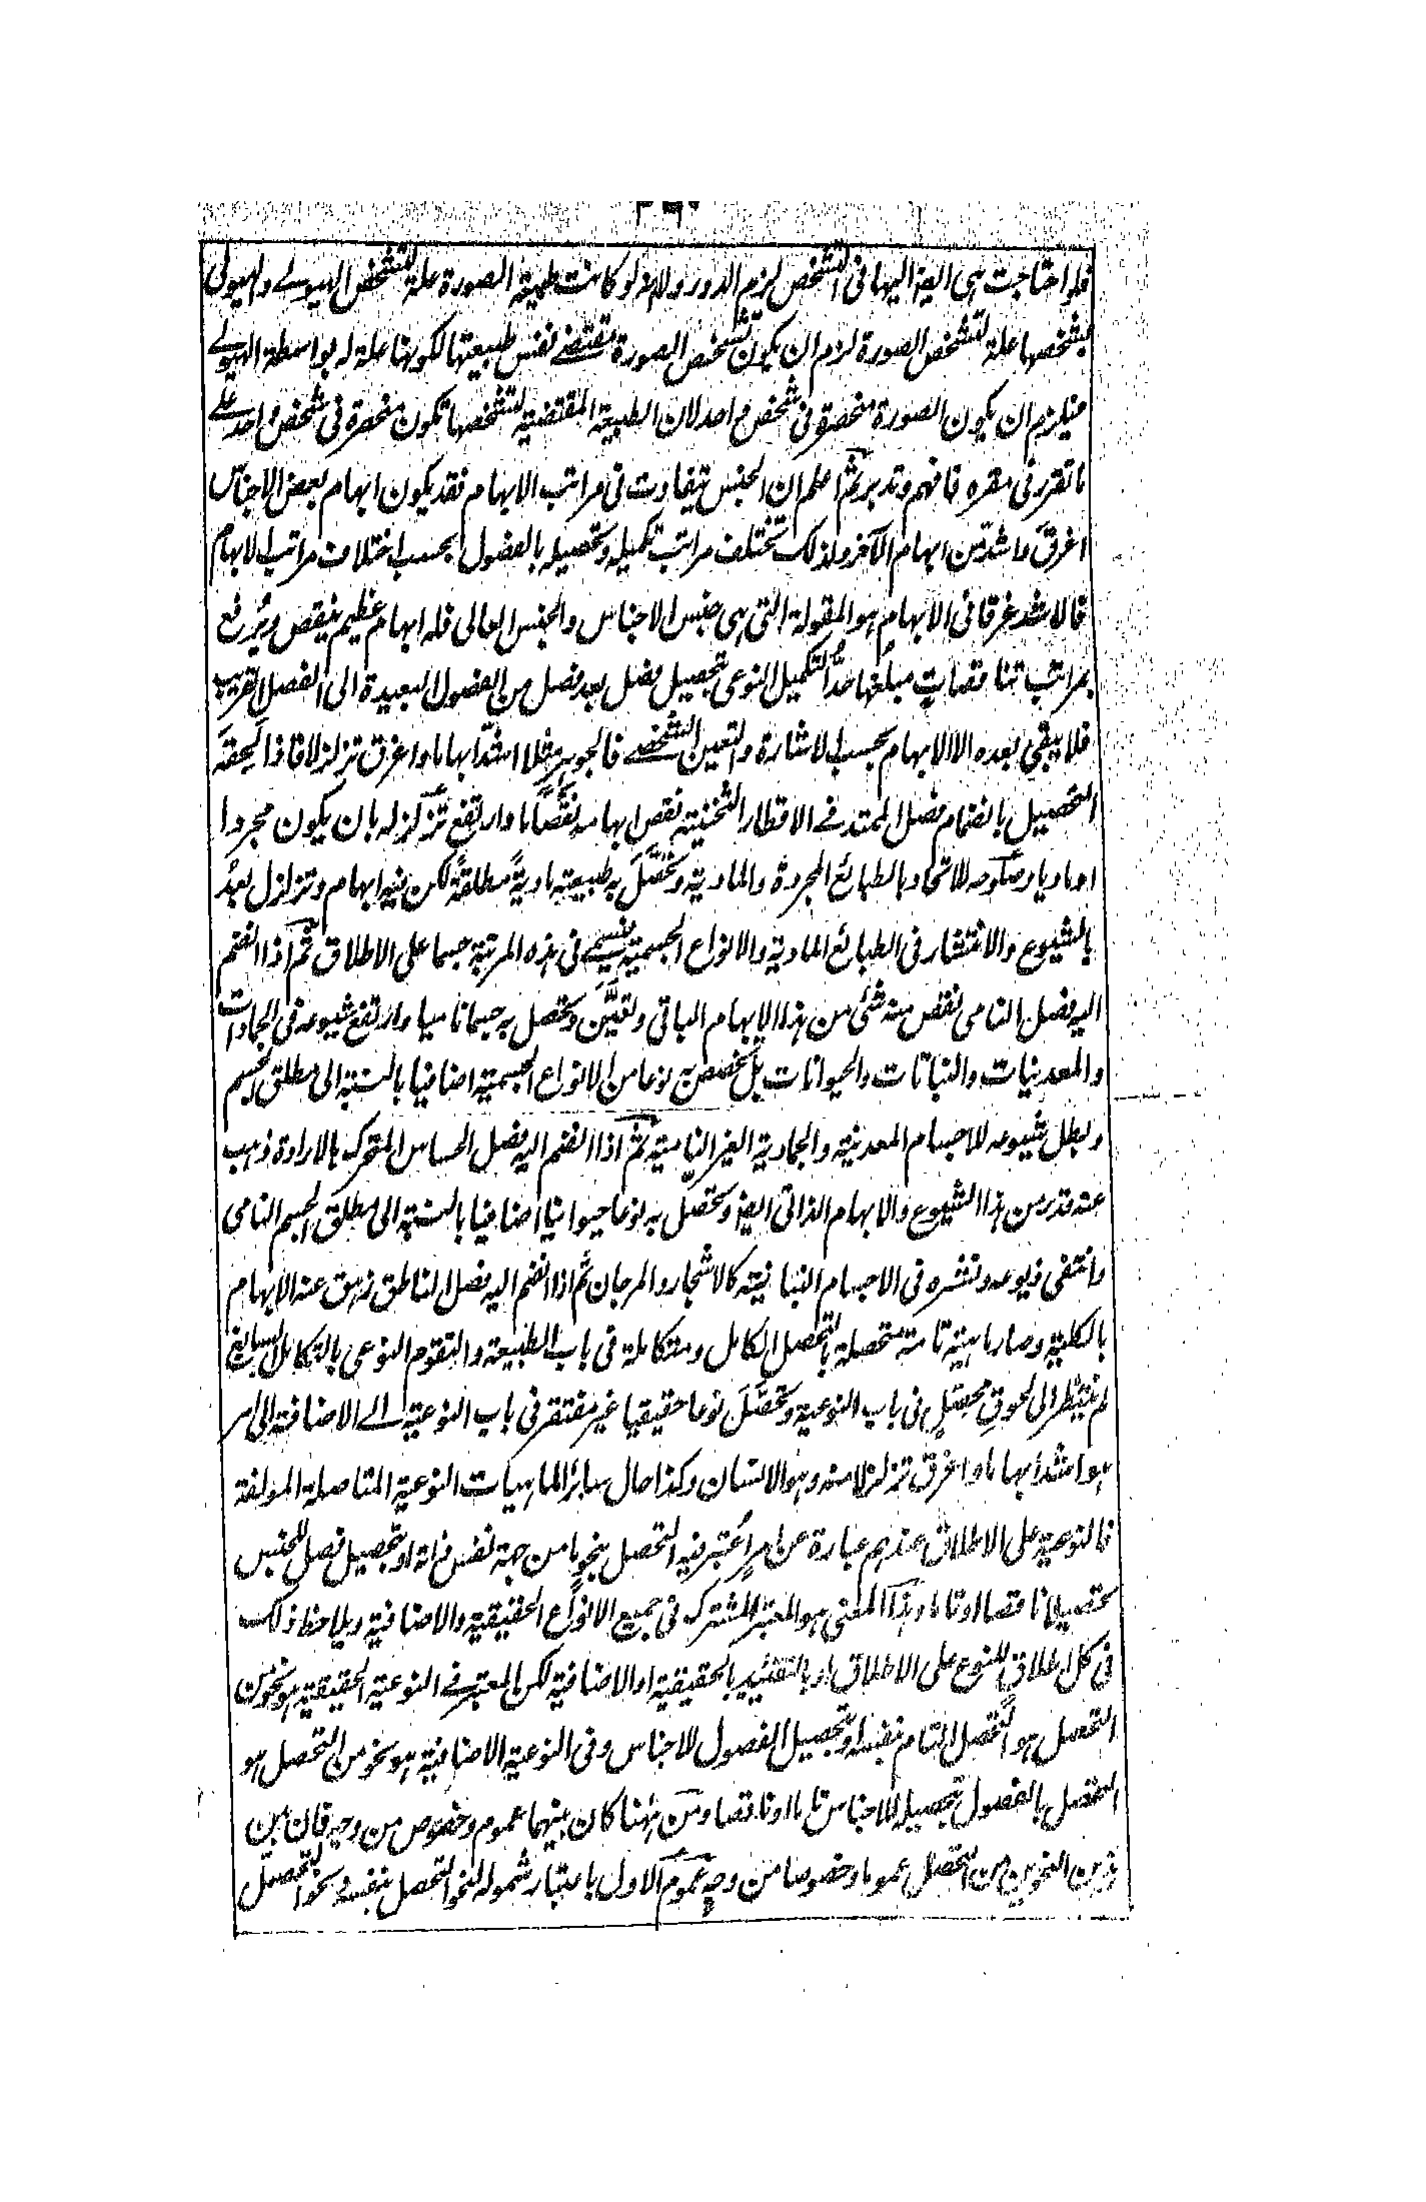 فلو احتاجت هى ايضا اليها فى التشخص لزم الدور ولانه لو كانت طبيعة الصورة علة لتشخص الهيولے والهيولى
بتشخصها علة لتشخص الصورة لزم ان يكون تشخص الصورة تقتضے نفس طبيعتها لكونها علة له بواسطة الهيولے
فيلزم ان يكون الصورة منحصرة فى شخص واحد لان الطبيعة المقتضية لتشخصها تكون منحصرة فى شخص واحد علے
ما تقرر فى مقره فافهم وتدبر ثم اعلم ان الجنس تتفاوت فى مراتب الابهام فقد يكون ابهام بعض الاجناس
اغرق واشد من ابهام الآخر ولذلك تختلف مراتب تكميله وتحصيله بالفصول بحسب اختلاف مراتب الابهام
فالاشد غرقا فى الابهام هو المقولة التى هى جنس الاجناس والجنس العالى فله ابهام عظيم ينقص ويرتفع
بمراتب تناقصات مبلغها حد التكميل النوعى بتحصيل فصل بعد فصل من الفصول البعيدة الى الفصل القريب
فلا يبقى بعده الا الابهام بحسب الاشارة والتعين الشخصے فالجوهر مثلا اشد ابهاما واغرق تزلزلا فاذا لحقه
التحصيل بانضمام فصل الممتد فے الاقطار الثخنية نقص ابهامه نقصا ما وارتفع تزلزله بان يكون مجردا
او ماديا وصلوحه للاتحاد بالطبائع المجردة والمادية وتحصل به طبيعة مادية مطلقة لكن فيه ابهام وتزلزل بعد
بالشيوع والانتشار فى الطبائع المادية والانواع الجسمية فيسمے فى هذه المرتبة جسما على الاطلاق ثم اذا انضم
اليه فصل النامى نقص منه شئ من هذا الابهام الباقى وتعين وتحصل به جسما ناميا وارتفع شيوعه فى الجمادات
والمعدنيات والنباتات والحيوانات بل تخصص به نوعا من الانواع الجسمية اضافيا بالنسبة الى مطلق الجسم
وبطل شيوعه للاجسام المعدنية والجمادية الغير النامية ثم اذا انضم اليه فصل الحساس المتحرك بالارادة ذهب
عنه قدر من هذا الشيوع والابهام الذاتى ايضا وتحصل به نوعا حيوانيا اضافيا بالنسبة الى مطلق الجسم النامى
وانتفى ذيوعه ونشره فى الاجسام النباتية كالاشجار والمرجان ثم اذا انضم اليه فصل الناطق زهق عنه الابهام
بالكلية وصار ماهية تامة متحصلة بالتحصل الكامل ومتكاملة فى باب الطبيعة والتقوم النوعى بالتكامل السابغ
لم ينتظر الى لحوق محصل فى باب النوعية وتحصل نوعا حقيقيا غير مفتقر فى باب النوعية الے الاضافة الى امر
هو اشد ابهاما واغرق تزلزلا منه وهو الانسان وكذا حال سائر الماهيات النوعية المتاصلة المولفة
فالنوعية على الاطلاق عندهم عبارة عن امر اعتبر فيه التحصل بنحو ما من جهة نفس ذاته او بتحصيل فصل للجنس
تحصيلا ناقصا او تاما وهذا المعنى هو المعتبر المشترك فى جميع الانواع الحقيقية والاضافية ويلاحظ ذلك
فى كل اطلاق للنوع على الاطلاق او بالتقئيد بالحقيقية او الاضافية لكن المعتبر فے النوعية الحقيقية هو نحو من
التحصل هو التحصل التام بنفسه او بتحصيل الفصول للاجناس وفى النوعية الاضافية هو نحو من التحصل هو
التحصل بالفصول بتحصيله للاجناس تاما او ناقصا ومن ههنا كان بينهما عموم وخصوص من وجه فان بين
هذين النحوين من التحصل عموما وخصوصا من وجه عموم الاول باعتبار شموله لنحو التحصل بنفسه ونحو التحصيل